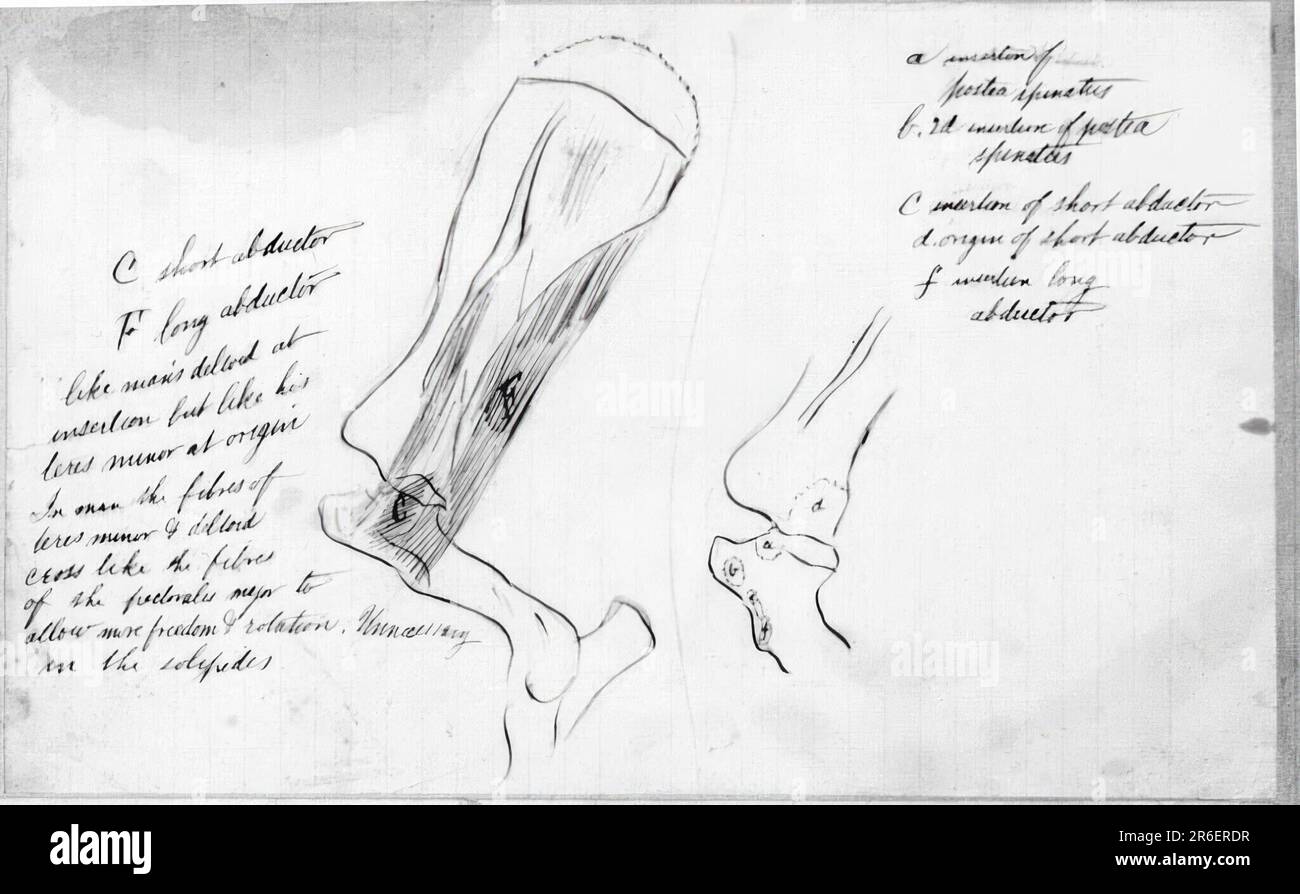 C short abductor
F long abductor
like man's deltoid at
insertion but like his
teres minor at origin
In man the fibres of
teres minor & deltoid
cross like the fibres
of the pectoralis major to
allow more freedom & rotation. Unnecessary
in the solipedes
F
C
a insertion of
postea spinatus
b. 2d insertion of postea
spinatus
C insertion of short abductor
d. origin of short abductor
f insertion long
abductor
d
a
b
c
f
alamy
alamy
alamy
alamy
alamy
Image ID: 2R6ERDR
www.alamy.com